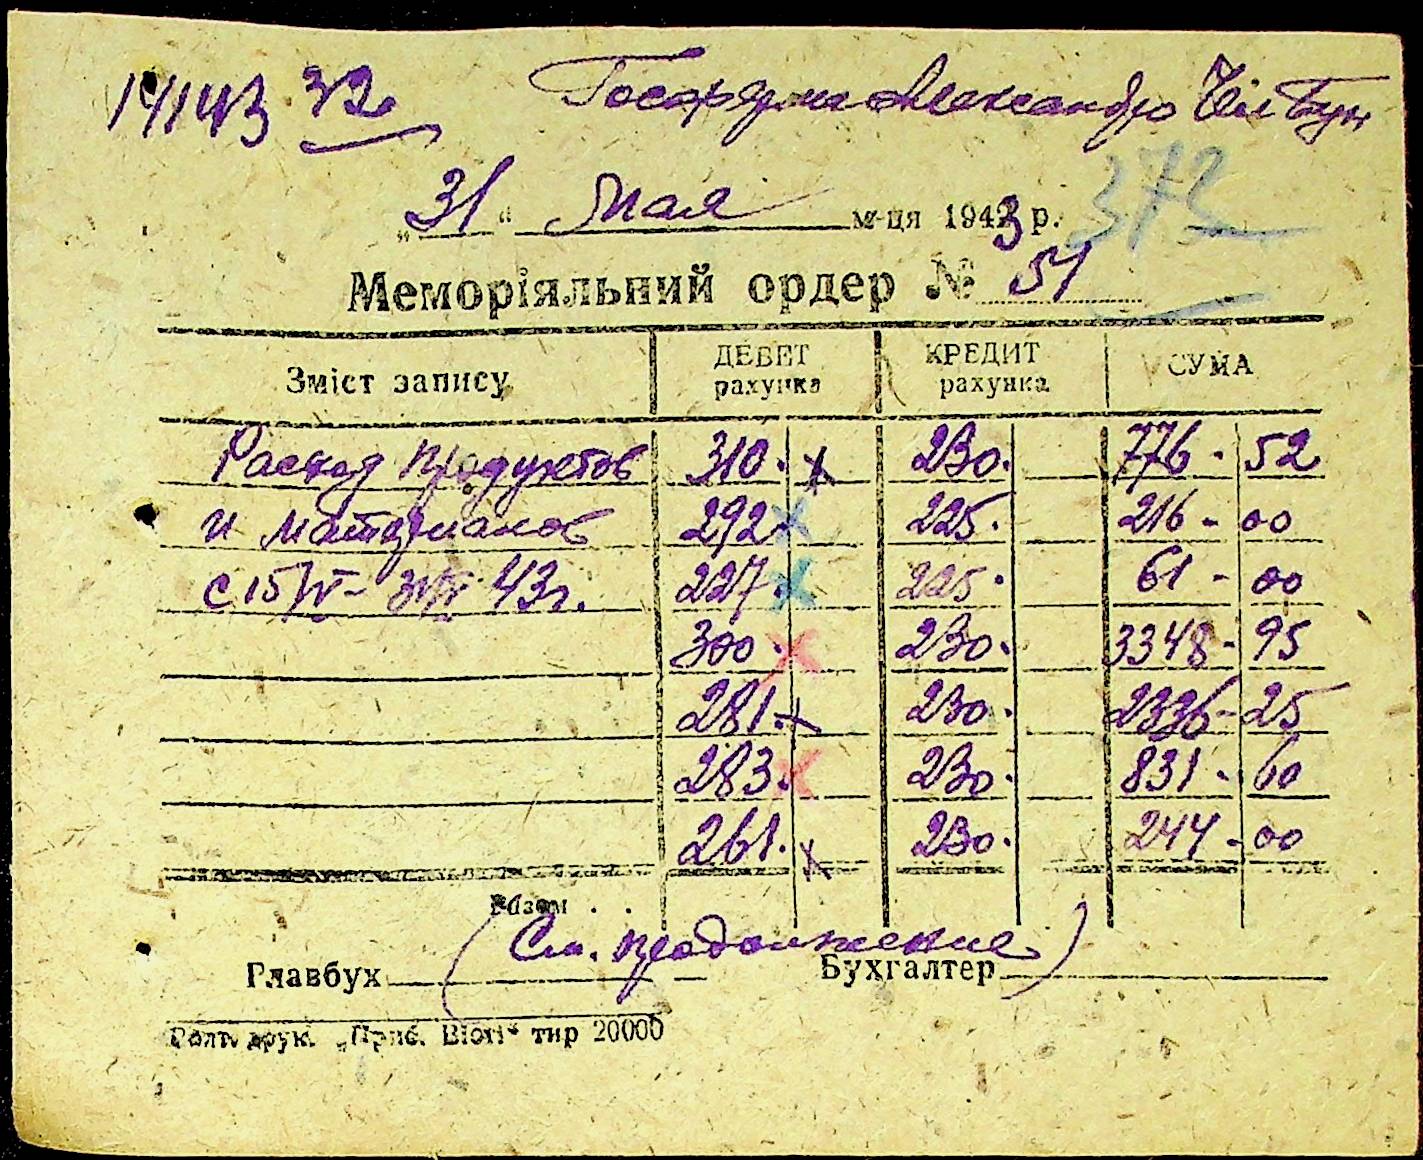 32
373
"31" Мая м-ця 1943 р.
Меморіяльний ордер № 51
Зміст запису ДЕБЕТ рахунка КРЕДИТ рахунка СУМА
Расход продуктов 310. 230. 776 - 52
и материалов 292. 225. 216 - 00
с 15/V - 31/V 43г. 227. 225. 61 - 00
300. 230. 3348 - 95
281. 230. 2336 - 25
283. 230. 831 - 60
261. 230. 244 - 00
Разом . .
(См. продолжение)
Главбух Бухгалтер
друк. тир 20000